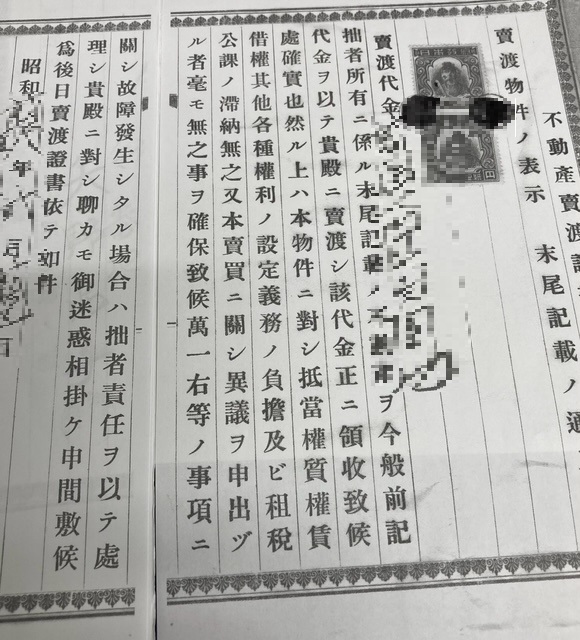 不動産賣渡
賣渡物件ノ表示 末尾記載ノ通
賣渡代金
拙者所有ニ係ル末尾記載ノ不動産ヲ今般前記
代金ヲ以テ貴殿ニ賣渡シ該代金正ニ領收致候
處確實也然ル上ハ本物件ニ對シ抵當權質權賃
借權其他各種權利ノ設定義務ノ負擔及ビ租税
公課ノ滯納無之又本賣買ニ關シ異議ヲ申出ヅ
ル者毫モ無之事ヲ確保致候萬一右等ノ事項ニ
關シ故障發生シタル場合ハ拙者責任ヲ以テ處
理シ貴殿ニ對シ聊カモ御迷惑相掛ケ申間敷候
爲後日賣渡證書依テ如件
昭和 年